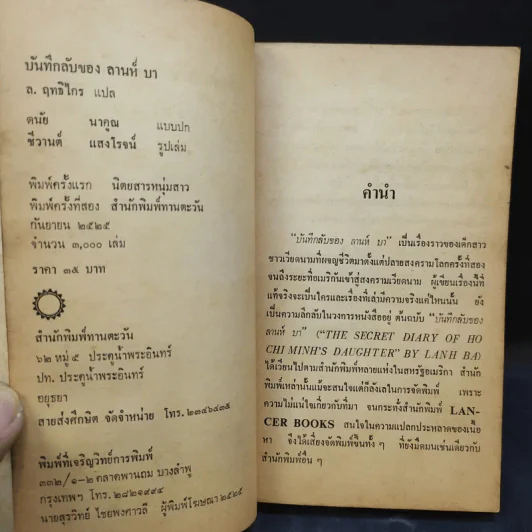 บันทึกลับของ ลานห์ บา
ล. ฤทธิไกร แปล
ดนัย นาคูณ แบบปก
ชีวานต์ แสงโรจน์ รูปเล่ม
พิมพ์ครั้งแรก นิตยสารหนุ่มสาว
พิมพ์ครั้งที่สอง สำนักพิมพ์ทานตะวัน
กันยายน ๒๕๒๕
จำนวน ๓,๐๐๐ เล่ม
ราคา ๓๕ บาท
สำนักพิมพ์ทานตะวัน
๖๒ หมู่ ๕ ประตูน้ำพระอินทร์
ปท. ประตูน้ำพระอินทร์
อยุธยา
สายส่งศึกษิต จัดจำหน่าย โทร. ๒๓๔๖๔๓๕
พิมพ์ที่เจริญวิทย์การพิมพ์
๓๓๒/๑-๒ ตลาดพานถม บางลำพู
กรุงเทพฯ โทร. ๒๘๒๑๙๙๔
นายสุรวิทย์ ไชยพงศาวลี ผู้พิมพ์โฆษณา ๒๕๒๕
คำนำ
"บันทึกลับของ ลานห์ บา" เป็นเรื่องราวของเด็กสาว
ชาวเวียดนามที่ผจญชีวิตมาตั้งแต่ปลายสงครามโลกครั้งที่สอง
จนถึงระยะที่อเมริกันเข้าสู่สงครามเวียดนาม ผู้เขียนเรื่องนี้ที่
แท้จริงจะเป็นใครและเรื่องที่เล่ามีความจริงแค่ไหนนั้น ยัง
เป็นความลึกลับในวงการหนังสืออยู่ ต้นฉบับ "บันทึกลับของ
ลานห์ บา" ("THE SECRET DIARY OF HO
CHI MINH'S DAUGHTER" BY LANH BA)
ได้เวียนไปตามสำนักพิมพ์หลายแห่งในสหรัฐอเมริกา สำนัก
พิมพ์เหล่านั้นแม้จะสนใจแต่ก็ลังเลในการจัดพิมพ์ เพราะ
ความไม่แน่ใจเกี่ยวกับที่มา จนกระทั่งสำนักพิมพ์ LAN-
CER BOOKS สนใจในความแปลกประหลาดของเนื้อ
หา จึงได้เสี่ยงจัดพิมพ์ขึ้นทั้ง ๆ ที่ยังมืดมนเช่นเดียวกับ
สำนักพิมพ์อื่น ๆ